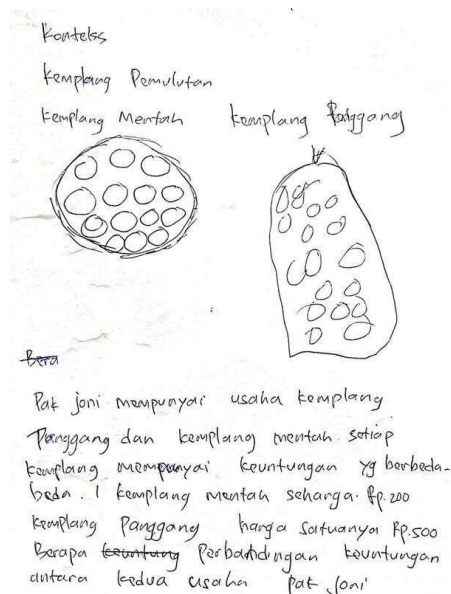 Konteks
Kemplang Pemulutan
Kemplang Mentah Kemplang Panggang
Bera
Pak joni mempunyai usaha kemplang
Panggang dan kemplang mentah. setiap
kemplang mempunyai keuntungan yg berbeda-
beda. 1 kemplang mentah seharga. Rp. 200
kemplang Panggang harga satuanya Rp.500
Berapa keuntung Perbandingan keuntungan
antara kedua usaha pak joni